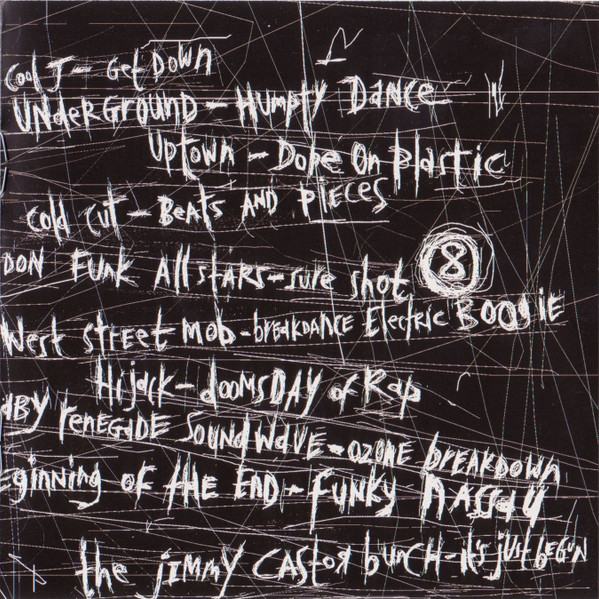 Cool J - Get Down
UNDERGROUND - HUMPTY DANCE
UPTOWN - DOPE ON PLASTIC
COLD CUT - BEATS AND PIECES
DON FUNK ALLSTARS - SURE SHOT
8
WEST STREET MOB - BREAKDANCE ELECTRIC BOOGIE
HIJACK - DOOMSDAY OF RAP
DBY RENEGADE SOUNDWAVE - OZONE BREAKDOWN
EGINNING OF THE END - FUNKY NASSAU
the JIMMY CASTOR BUNCH - IT'S JUST BEGUN